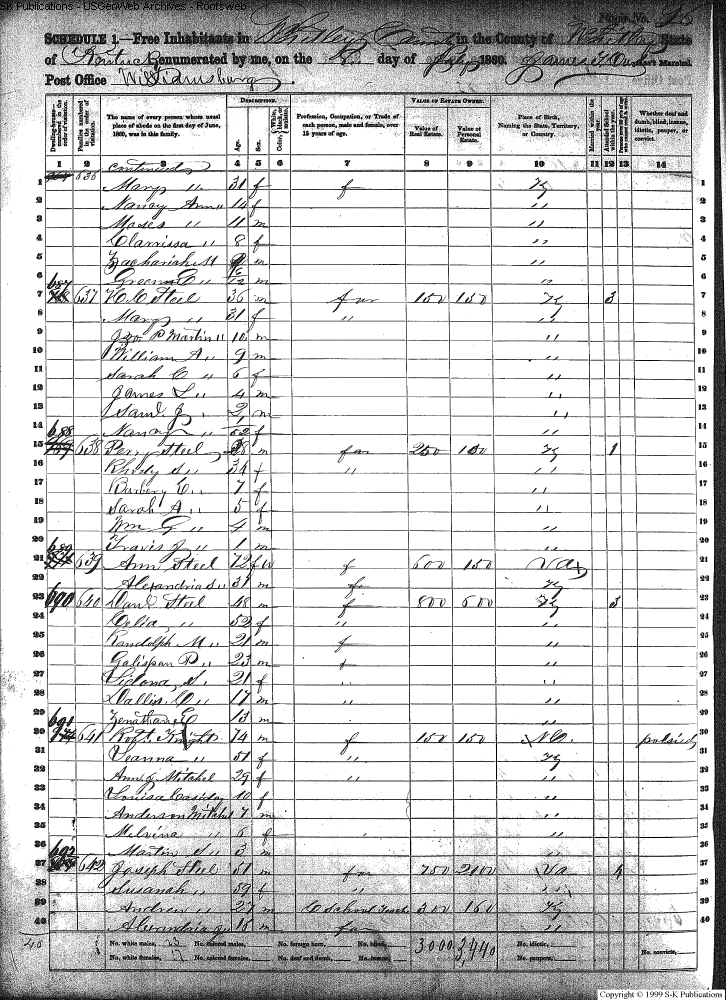 SK Publications - USGenWeb Archives - Rootsweb
Page No. 96
SCHEDULE 1.—Free Inhabitants in Whitley County in the County of Whitley State
of Kentucky enumerated by me, on the day of 1860. Ass't Marshal.
Post Office Williamsburg
DESCRIPTION. VALUE OF ESTATE OWNED.
Dwelling-houses—numbered in the order of visitation. Families numbered in the order of visitation. The name of every person whose usual place of abode on the first day of June, 1860, was in this family. Age. Sex. Color, White, black, or mulatto. Profession, Occupation, or Trade of each person, male and female, over 15 years of age. Value of Real Estate. Value of Personal Estate. Place of Birth, Naming the State, Territory, or Country. Married within the year. Attended School within the year. Whether deaf and dumb, blind, insane, idiotic, pauper, or convict.
1 2 3 4 5 6 7 8 9 10 11 12 13 14
636 continued
1 Mary " 31 f f Ky
2 Nancy Ann " 14 f "
3 Moses " 11 m "
4 Clarrissa " 8 f "
5 Zachariah M m "
6 Green C " m "
7 687 637 H C Steel 36 m far 150 150 Ky 3
8 Mary " 31 f " "
9 P Martin " 10 m "
10 William A " 9 m "
11 Sarah C " 6 f "
12 James L " 4 m "
13 Saml J " 2 m "
14 Nancy " 52 f "
15 688 638 Perry Steel m far 250 100 Ky 1
16 Rhody S " 34 f " "
17 Barbery E " 7 f "
18 Sarah A " 5 f "
19 Wm G " 4 m "
20 Travis J " 1 m "
21 689 639 Ann Steel 72 f w f 600 150 Va
22 Alexandria S " 31 m f Ky
23 690 640 Danl Steel 48 m f 800 600 Ky 3
24 Celia " 52 f " "
25 Randolph M " 21 m f "
26 P " 23 m f "
27 S " 21 f " "
28 Dallis D " 17 m "
29 E 13 m "
30 691 641 Robt Knight 74 m f 150 150 NC palsied
31 " 51 f " Ky
32 Ann J Mitchel 29 f " "
33 Louisa 10 f
34 Anderson Mitchel 7 m "
35 Melvina " 6 f "
36 Martin S " 3 m "
37 692 642 Joseph Steel 51 m far 750 2100 Va
38 Susanah " 59 f " "
39 Andrew " 27 m C School Teach 300 160 Ky
40 Alexandria " 18 m far "
40 No. white males, 23 No. colored males, No. foreign born, No. blind, 3000 3,440 No. idiotic, No. convicts,
No. white females, 17 No. colored females, No. deaf and dumb, No. insane, No. paupers,
Copyright © 1999 S-K Publications